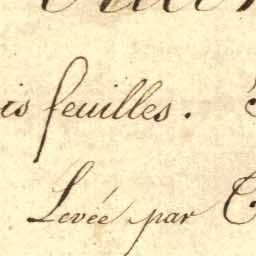 is feuilles.
Levée par